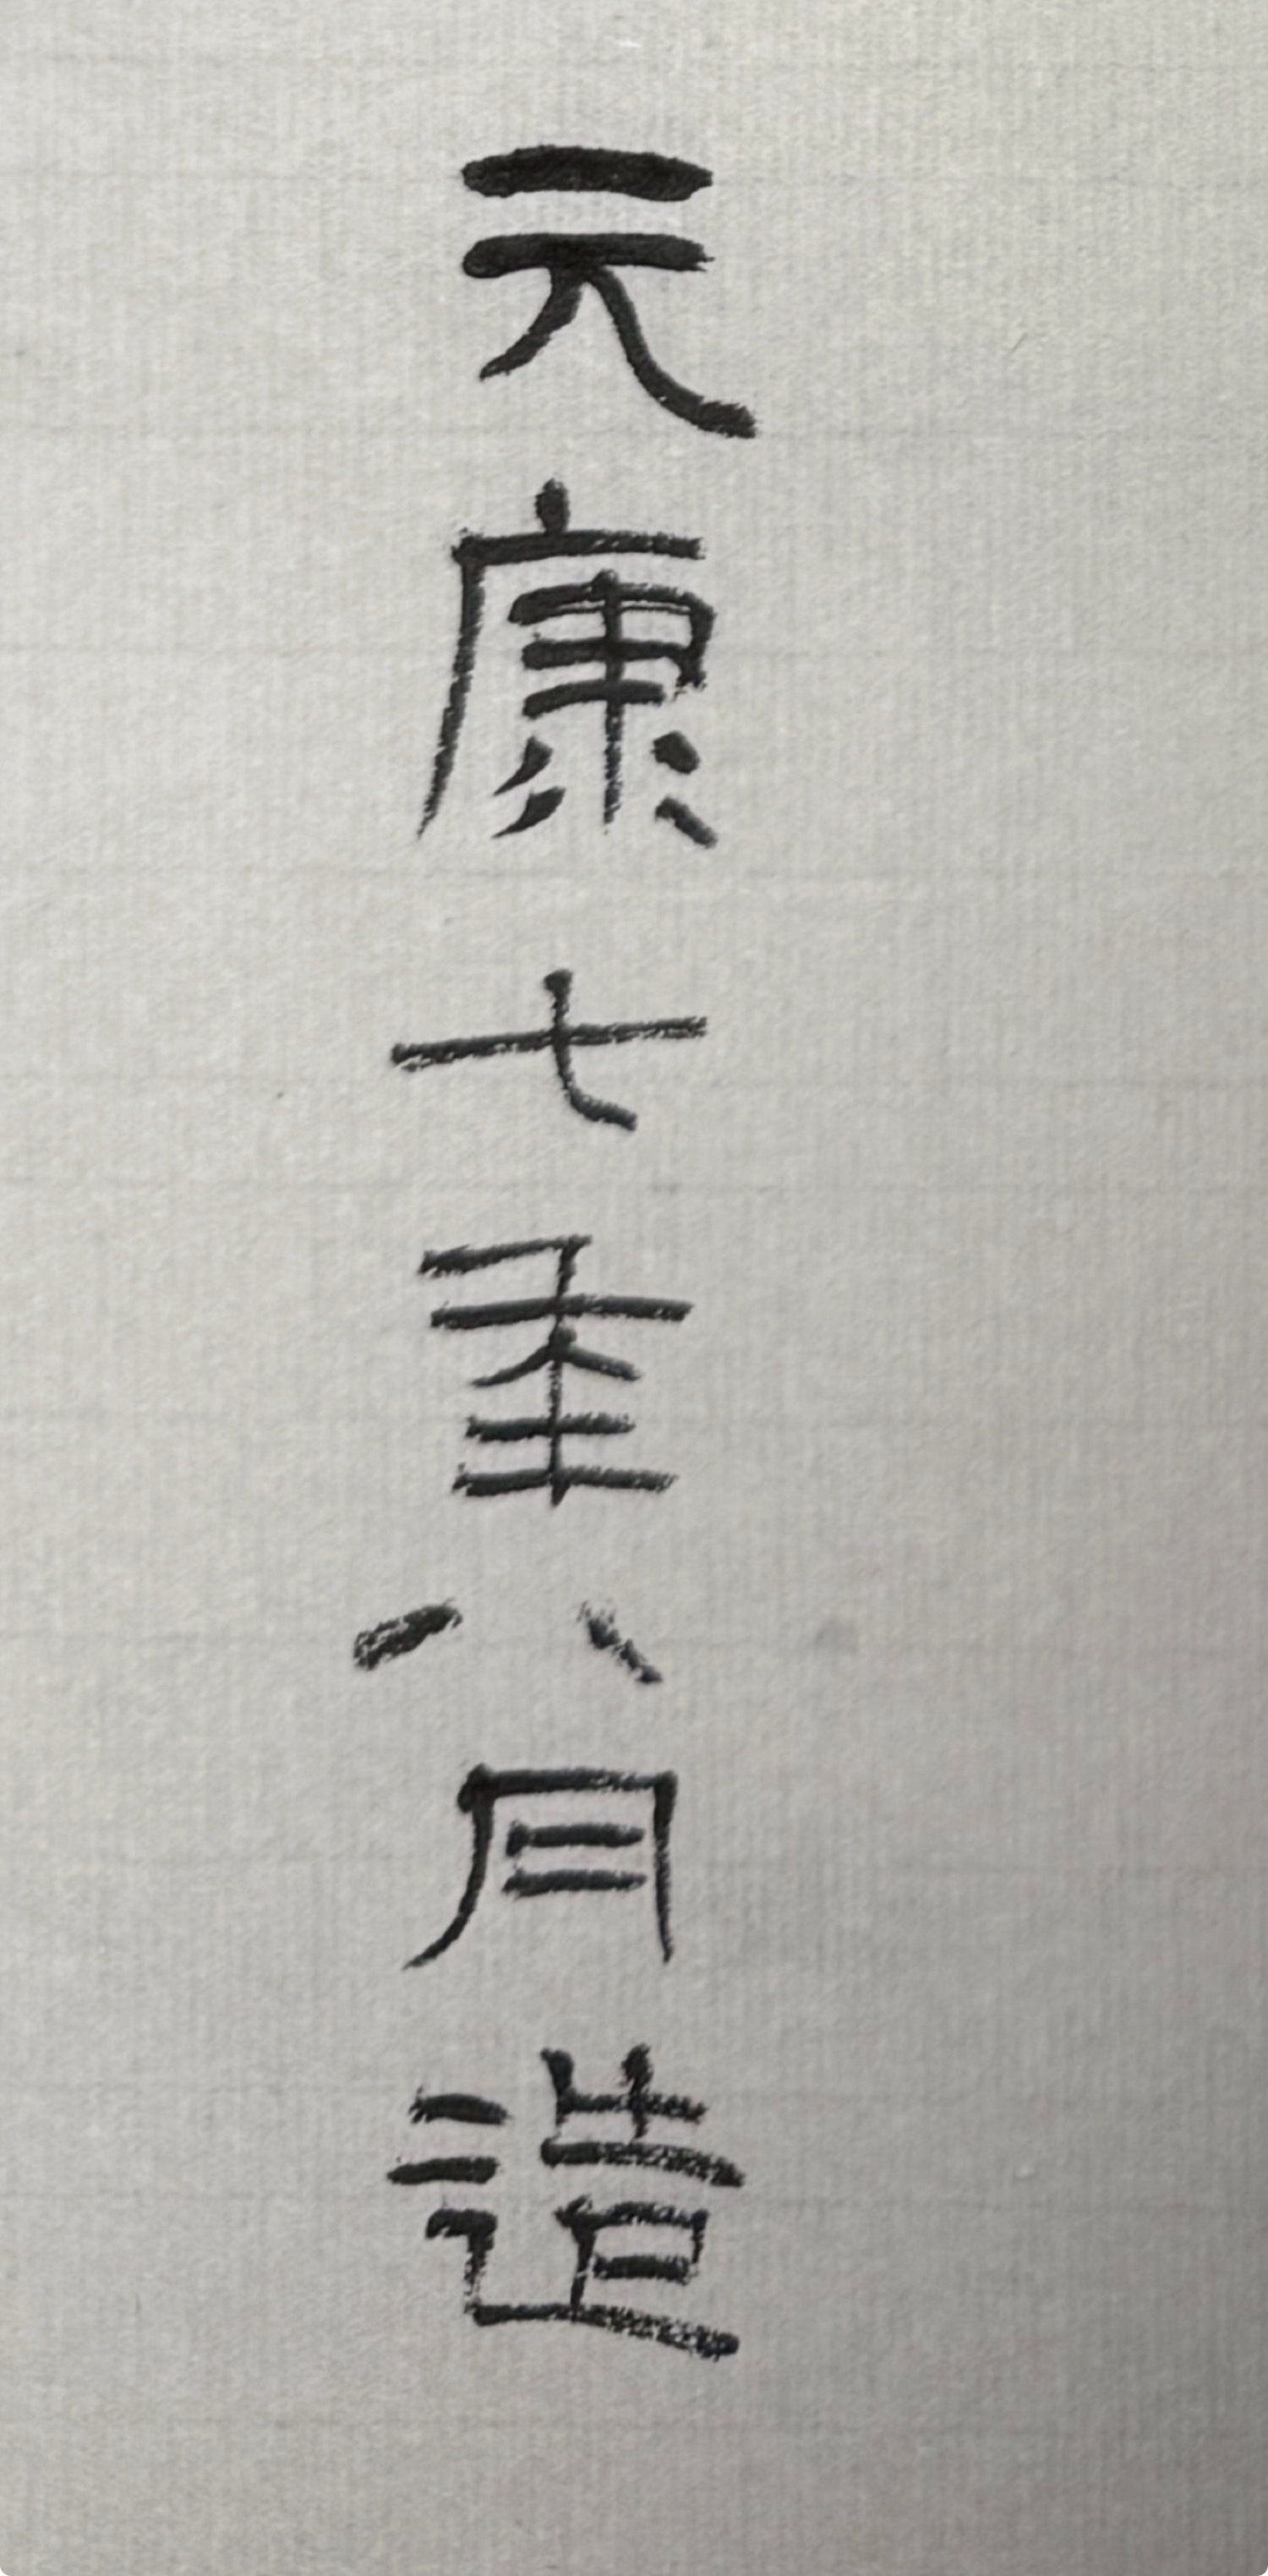 元康七年八月造